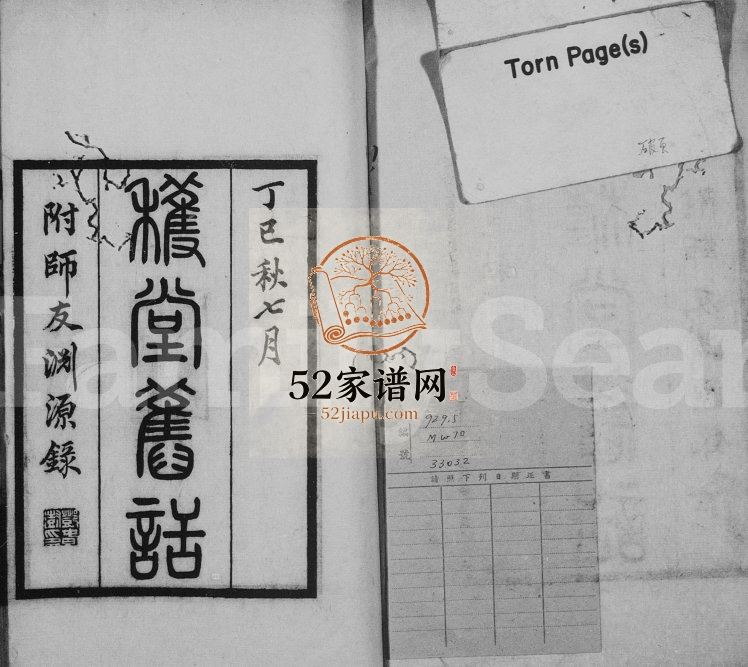 丁巳秋七月
穫堂舊話
附師友渊源錄
Torn Page(s)
破頁
52家谱网
52jiapu.com
FamilySear
號
929.5
MW70
33032
請照下列日期还書